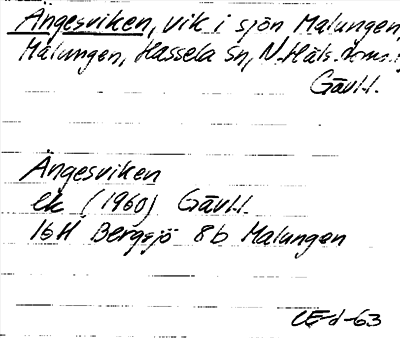 Ängesviken, vik i sjön Malungen,
Malungen, Hassela sn, N.Häls. doms.,
Gävl.l.
Ängesviken
ek (1960) Gävl.l.
16H Bergsjö 8b Malungen
CE-d-63